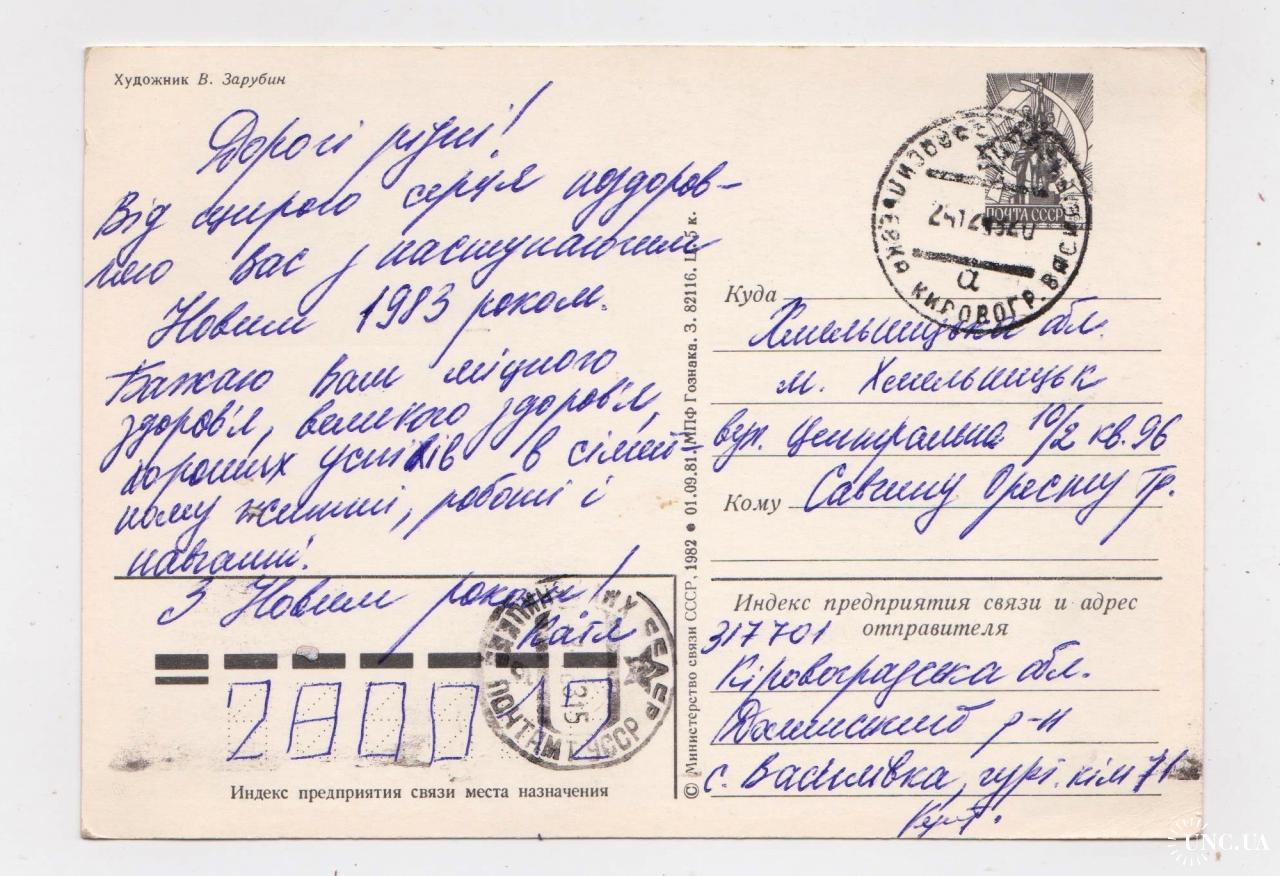 Художник В. Зарубин
Дорогі рідні!
Від щирого серця поздоров-
ляю вас з наступаючим
Новим 1983 роком.
Бажаю вам міцного
здоров'я, великого здоров'я,
хороших успіхів в сімей-
ному житті, роботі і
навчанні.
З Новим роком!
Катя
280012
Индекс предприятия связи места назначения
© Министерство связи СССР, 1982 ● 01.09.81. МПФ Гознака. З. 82116. Ц. 5 к.
ПОЧТА СССР
КИРОВОГР.
а
ПОЧТАМТ УССР
Куда
Хмельницька обл.
м. Хмельницьк
вул. Центральна 10/2 кв. 96
Кому Савчину Оресту Гр.
Индекс предприятия связи и адрес
отправителя
317701
Кіровоградська обл.
р-н
с. Василівка, гурт. кім 71
UNC.UA